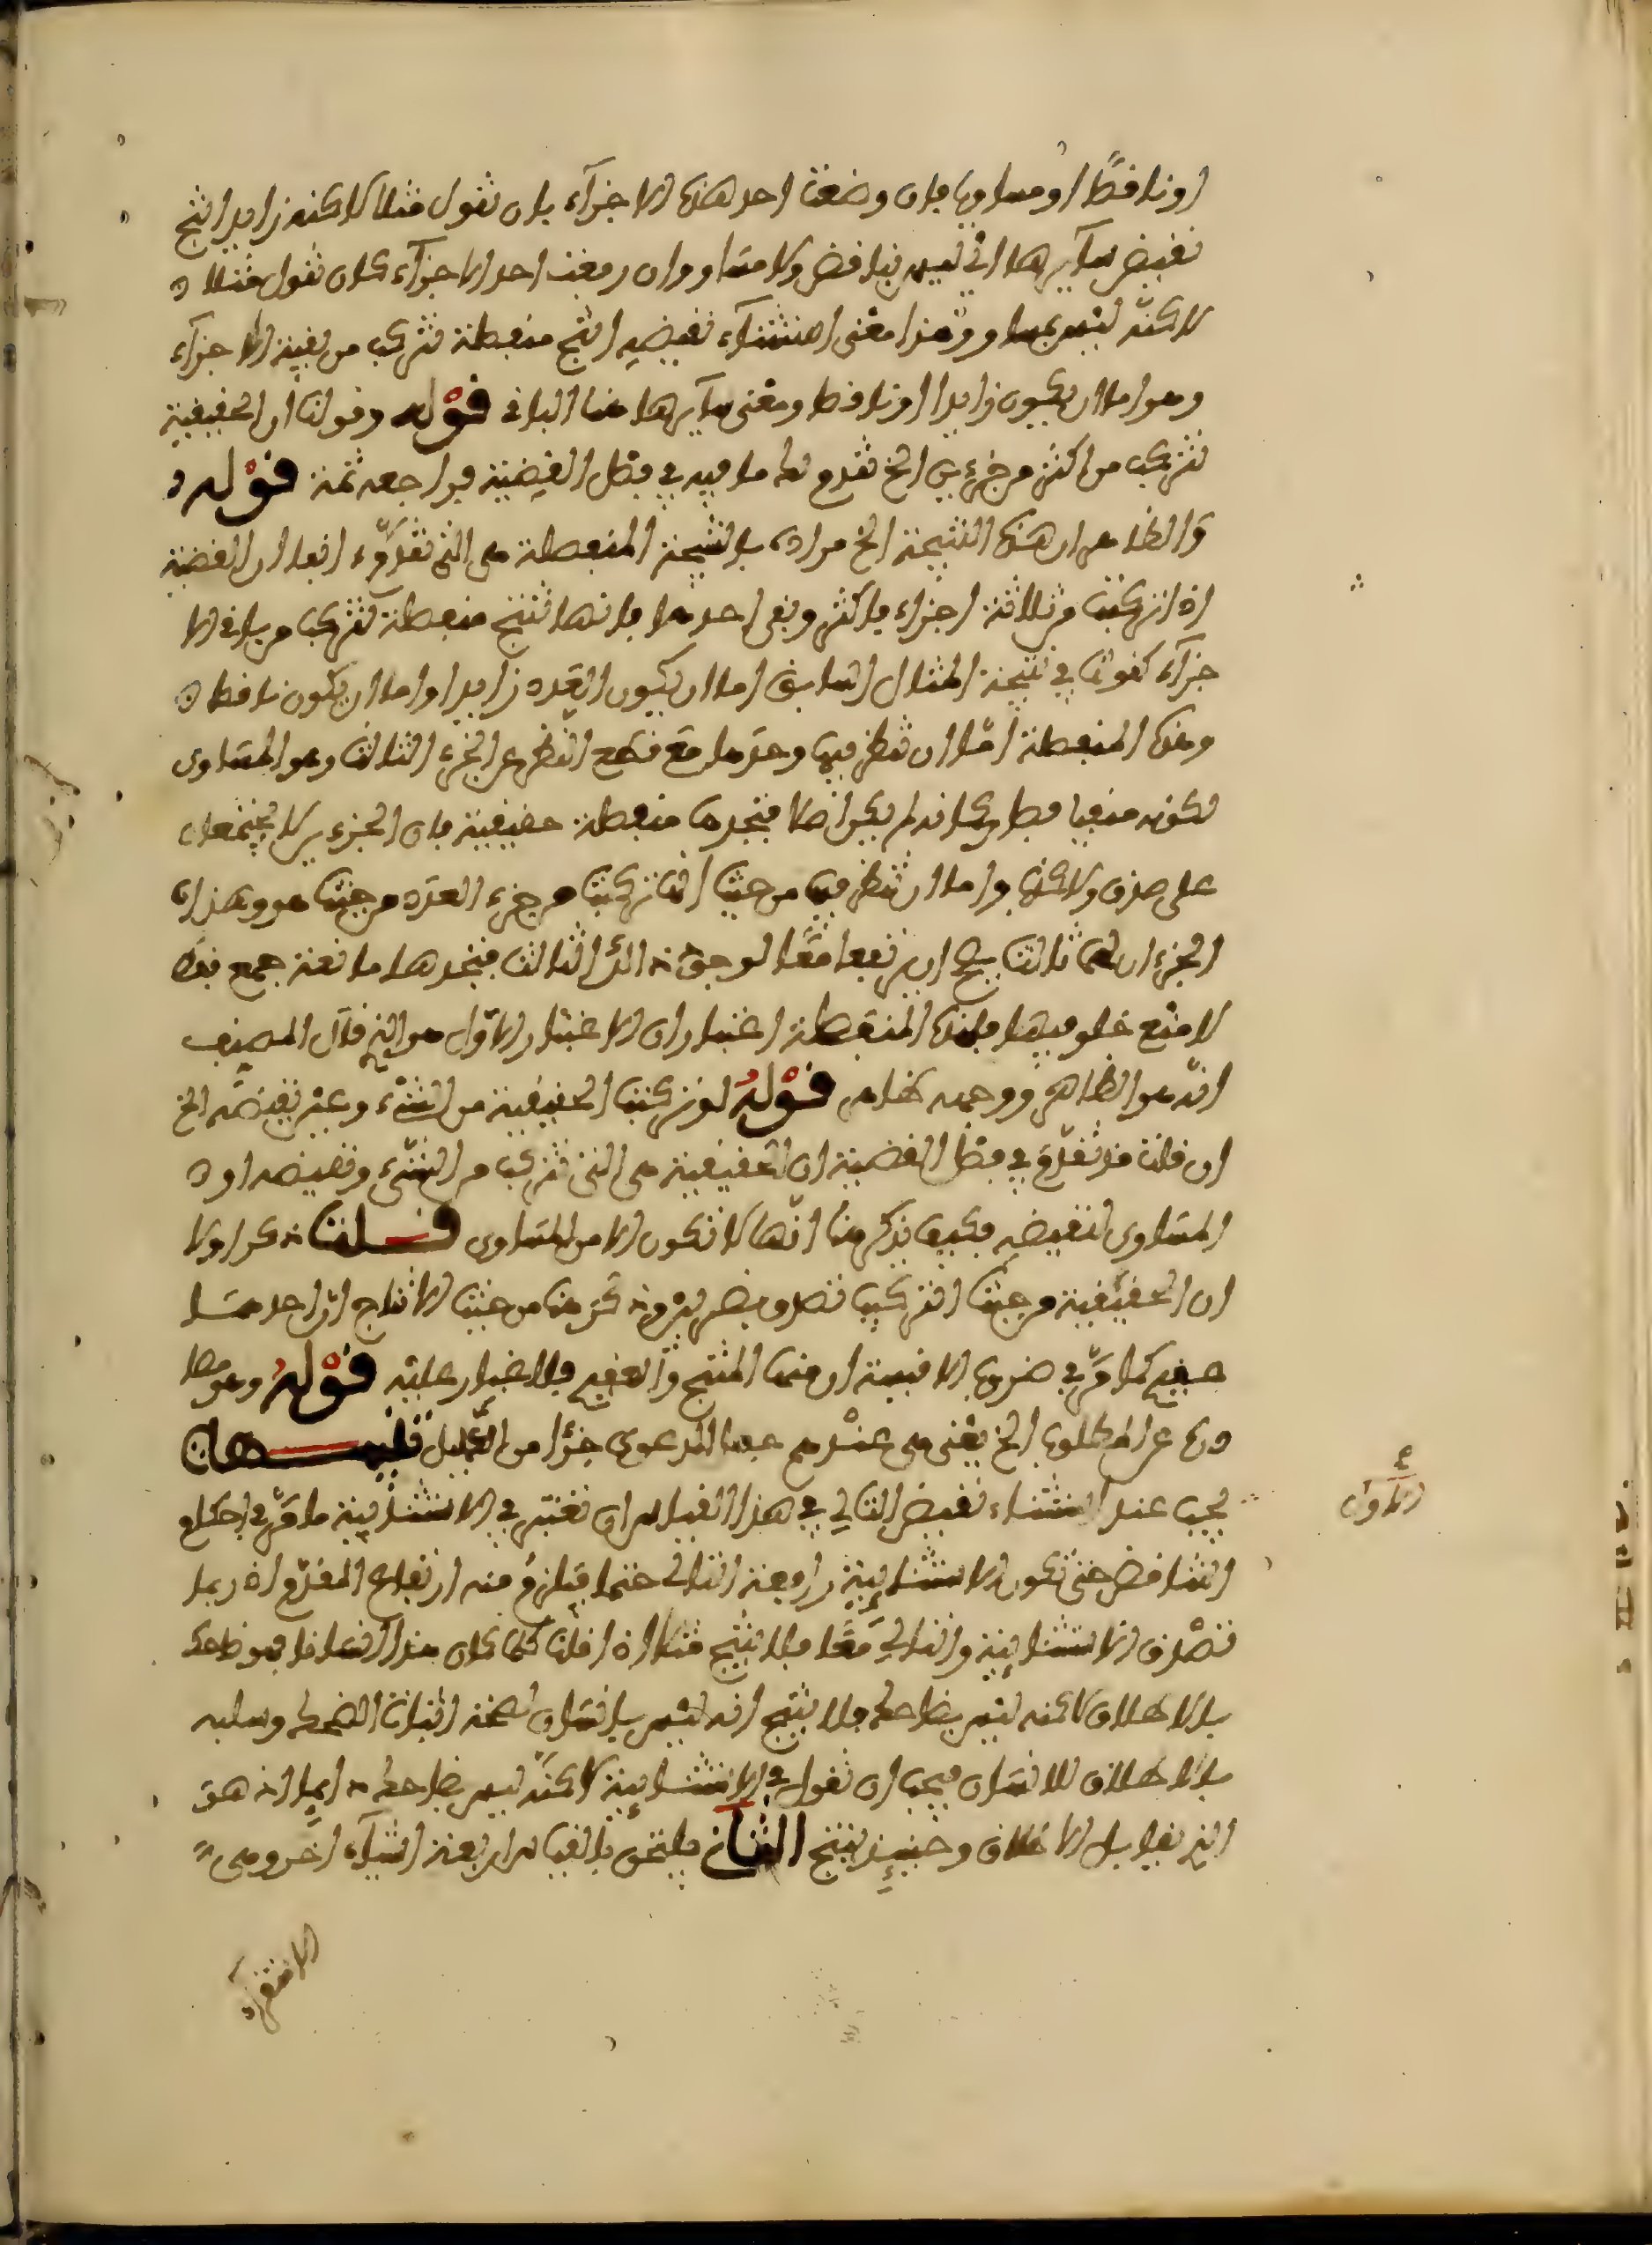 او ناقصا او مساويا فان وضعت احد هذه الاجزآء بان تقول مثلا لاكنه زايد انتج
نقيض سآيرها اي ليس بناقص ولا مساو وان رفعت احد الاجزآء كان تقول مثلا
لاكنه ليس بمساو وهذا معنى استثنآء نقيضه انتج منفصلة تتركب من بقية الاجزآء
وهو اما ان يكون زايدا او ناقصا ومعنى سآيرها هنا الباقي قوله وقولنا ان الحقيقية
تتركب من اكثر من جزءين الخ تقدم لنا ما فيه في فصل القضية فراجعه ثمة قوله
والظاهر ان هذه النتيجة الخ مراده بالنتيجة المنفصلة هي التي تقدم انفا ان القضية
اذا تركبت من ثلاثة اجزاء فاكثر ونفي احدها فانها تنتج منفصلة تتركب من باقي الا
جزآء كقولنا في نتيجة المثال السابق اما ان يكون العدد زايدا واما ان يكون ناقصا
وهذه المنفصلة اما ان تنظر فيها وحدها مع قطع النظر عن الجزء الثالث وهو المساوي
لكونه منفيا فصار كانه لم يكن اصلا فتجدها منفصلة حقيقية فان الجزءين لا يجتمعان
على صدق ولا كذب واما ان تنظر فيها من حيث انها تركبت من جزءي العدد من حيث هو وهذان
الجزءان لهما ثالث يصح ان يرتفعا معا لوجود ذالك الثالث فتجدها مانعة جمع فقط
لا منع خلو فيها فلهذه المنفصلة اعتباران الاعتبار الاول هو الذي قال المصنف
انه هو الظاهر ووجهه ظاهر قوله لو تركبت الحقيقية من الشيء وعين نقيضه الخ
ان قلت قد تقدم في فصل القضية ان الحقيقية هي التي تتركب من الشيء ونقيضه او
المساوي لنقيضه فكيف يذكر هنا انها لا تكون الا من المساوي قلت ذكر اولا
ان الحقيقية من حيث التركيب تصدق بضربين وذكر هنا من حيث الانتاج ان احدهما
عقيم كما مر في ضروب الاقيسة ان منها المنتج والعقيم فلا غبار عليه قوله وهو مصا
درة عن المطلوب الخ يعني هي عندهم جعل الدعوى جزءا من الدليل تنبيهان
يجب عند استثناء نقيض التالي في هذا القياس ان تعتبر في الاستثنايية ما مر في احكام
التناقض حتى تكون الاستثنايية رافعة التالي حتما فيلزم منه ارتفاع المقدم اذ ربما
تصدق الاستثنايية والتالي معا فلا ينتج مثلا اذا قلنا كلما كان هذا انسانا فهو ضاحك
بالاطلاق لاكنه ليس بضاحك فلا ينتج انه ليس بانسان لصحة اثبات الضحك وسلبه
بالاطلاق للانسان فيجب ان تقول في الاستثنايية لاكنه ليس بضاحك دايما اذ هو
الذي يقابل الاطلاق وحينيذ ينتج الثاني يلتحق بالقياس اربعة اشيآء اخر وهي
الاستقرآء